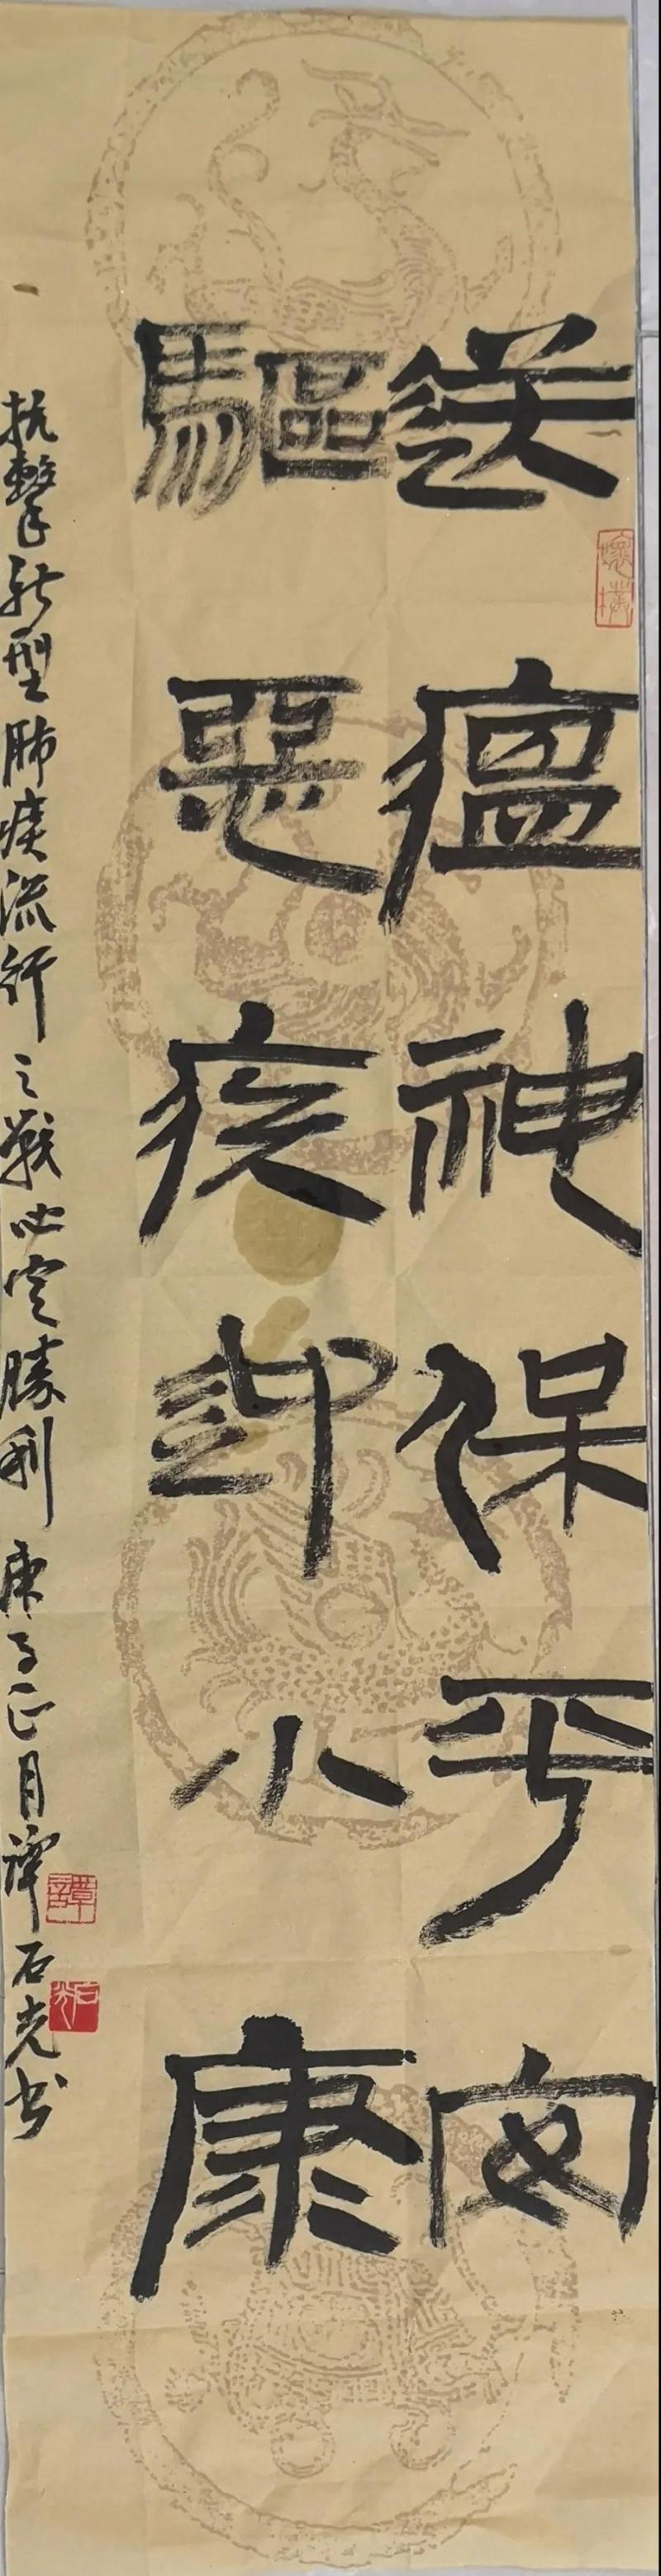 送瘟神保平安
驅惡疾迎小康
抗擊新型肺疾流行之戰必定勝利 庚子正月譚石光书
譚
石光